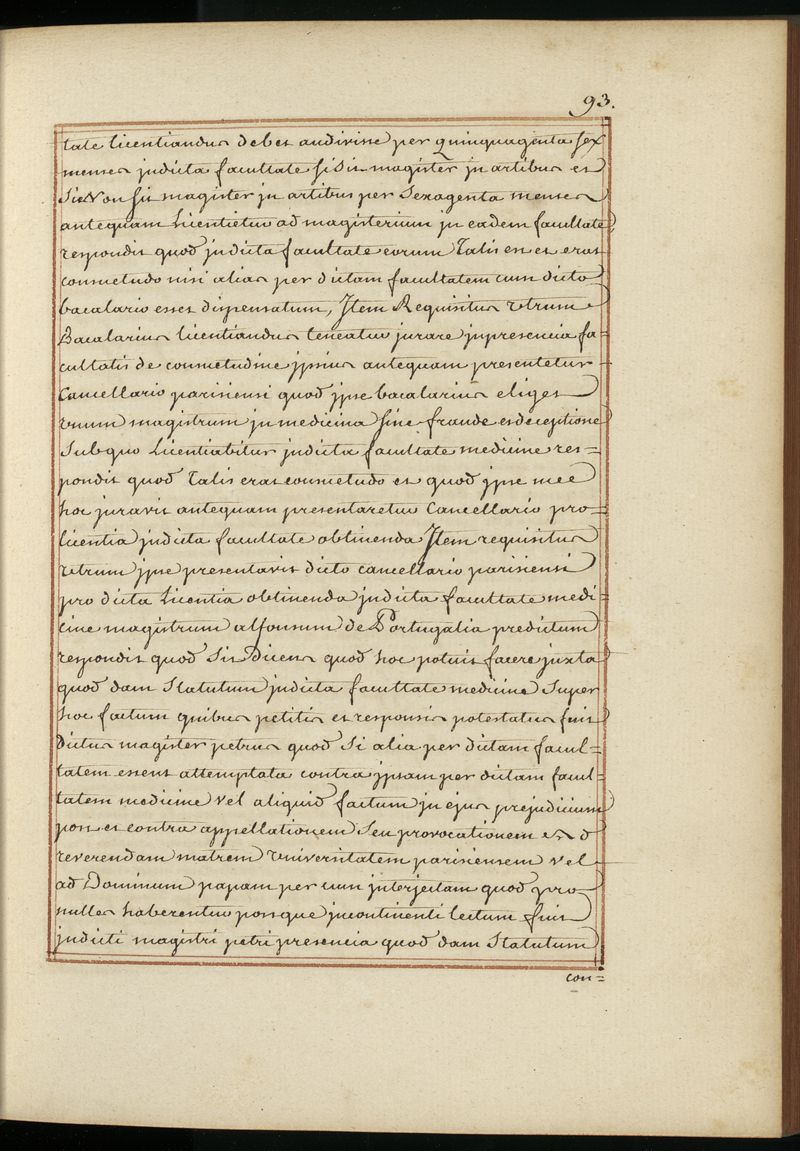 93.
tate licentiandus debet audivisse per quinquagenta sex
menses jndicta facultate si sit magister jn artibus et
si Non sit magister jn artibus per sexagenta menses
antequam Licentietur ad magisterium jn eadem facultate
respondit quod jndicta facultate eorum talis est et erat
consuetudo nisi alias per dictam facultatem cum dicto
bacalario esset dispensatum, Jtem Requisitus utrum
Bacalarius licentiandus teneatur jurare jnpresencia fa=
cultatis de consuetudine jpsius antequam presentetur
Cancellario parisiensi quod jpse bacalarius eliget
unum magistrum jn medicina sine fraude et deceptione
Sub quo Licentiabitur jndicta facultate medicine res=
pondit quod talis erat consuetudo et quod jpse met
hoc juravit antequam presentaretur Cancellario pro=
licentia jndicta facultate obtinenda Jtem requisitus
utrum jpse presentavit dicto cancellario parisiensi
pro dicta Licentia obtinenda jndicta facultate medi=
cine magistrum alfonsum de Portugalia predictum
respondit quod sic Dicens quod hoc potuit facere juxta
quod dam Statutum jndicta facultate medicine Super
hoc factum quibus petitis et responsis potestatus fuit
dictus magister petrus quod Si alia per dictam facul=
tatem essent attemptata contra jpsam per dictam facul=
tatem medicine vel aliquid factum jn ejus prejudicium
post et contra appellationem Seu provocationem ad
reverendam matrem Universitatem parisiensem vel
ad Dominum papam per eum jnterjectam quod pro
nullis haberentur postque jncontinenti lectum fuit
jndicti magistri petri presencia quod dam Statutum
con=